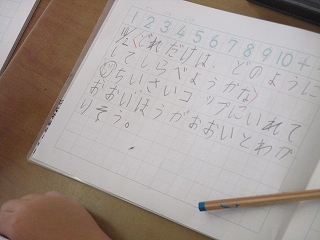 1 2 3 4 5 6 7 8 9 10 +
どれだけは、どのように
してしらべようかな
ちいさいコップにいれて
おおいほうがおおいとわか
りそう。